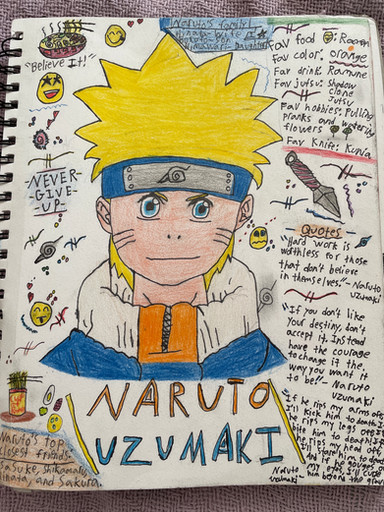 Naruto's family:
Hinata-wife
Boruto-son
Himawari-Daughter
"Believe It!"
Fav food: Ramen
Fav color: orange
Fav drink: Ramune
Fav Jutsu: Shadow
Clone
Jutsu
Fav hobbies: Pulling
pranks and watering
flowers
Fav Knife: Kunai
-NEVER-
-GIVE-
-UP-
Quotes
"Hard work is
worthless for those
that don't believe
in themselves."-Naruto
Uzumaki
"If you don't like
your destiny, don't
accept it. Instead
have the courage
to change it the
way you want it
to be!!"- Naruto
Uzumaki
"If he rips my arms off,
I'll kick him to death. If
he rips my legs off I'll
bite him to death. If
he rips my head off,
I'll stare him to death
and if he gouges out
my eyes, I'll curse
him beyond the grave
Naruto
Uzumaki-
NARUTO
UZUMAKI
Naruto's top
closest friends-
Sasuke, Shikamaru,
Hinata, and Sakura.